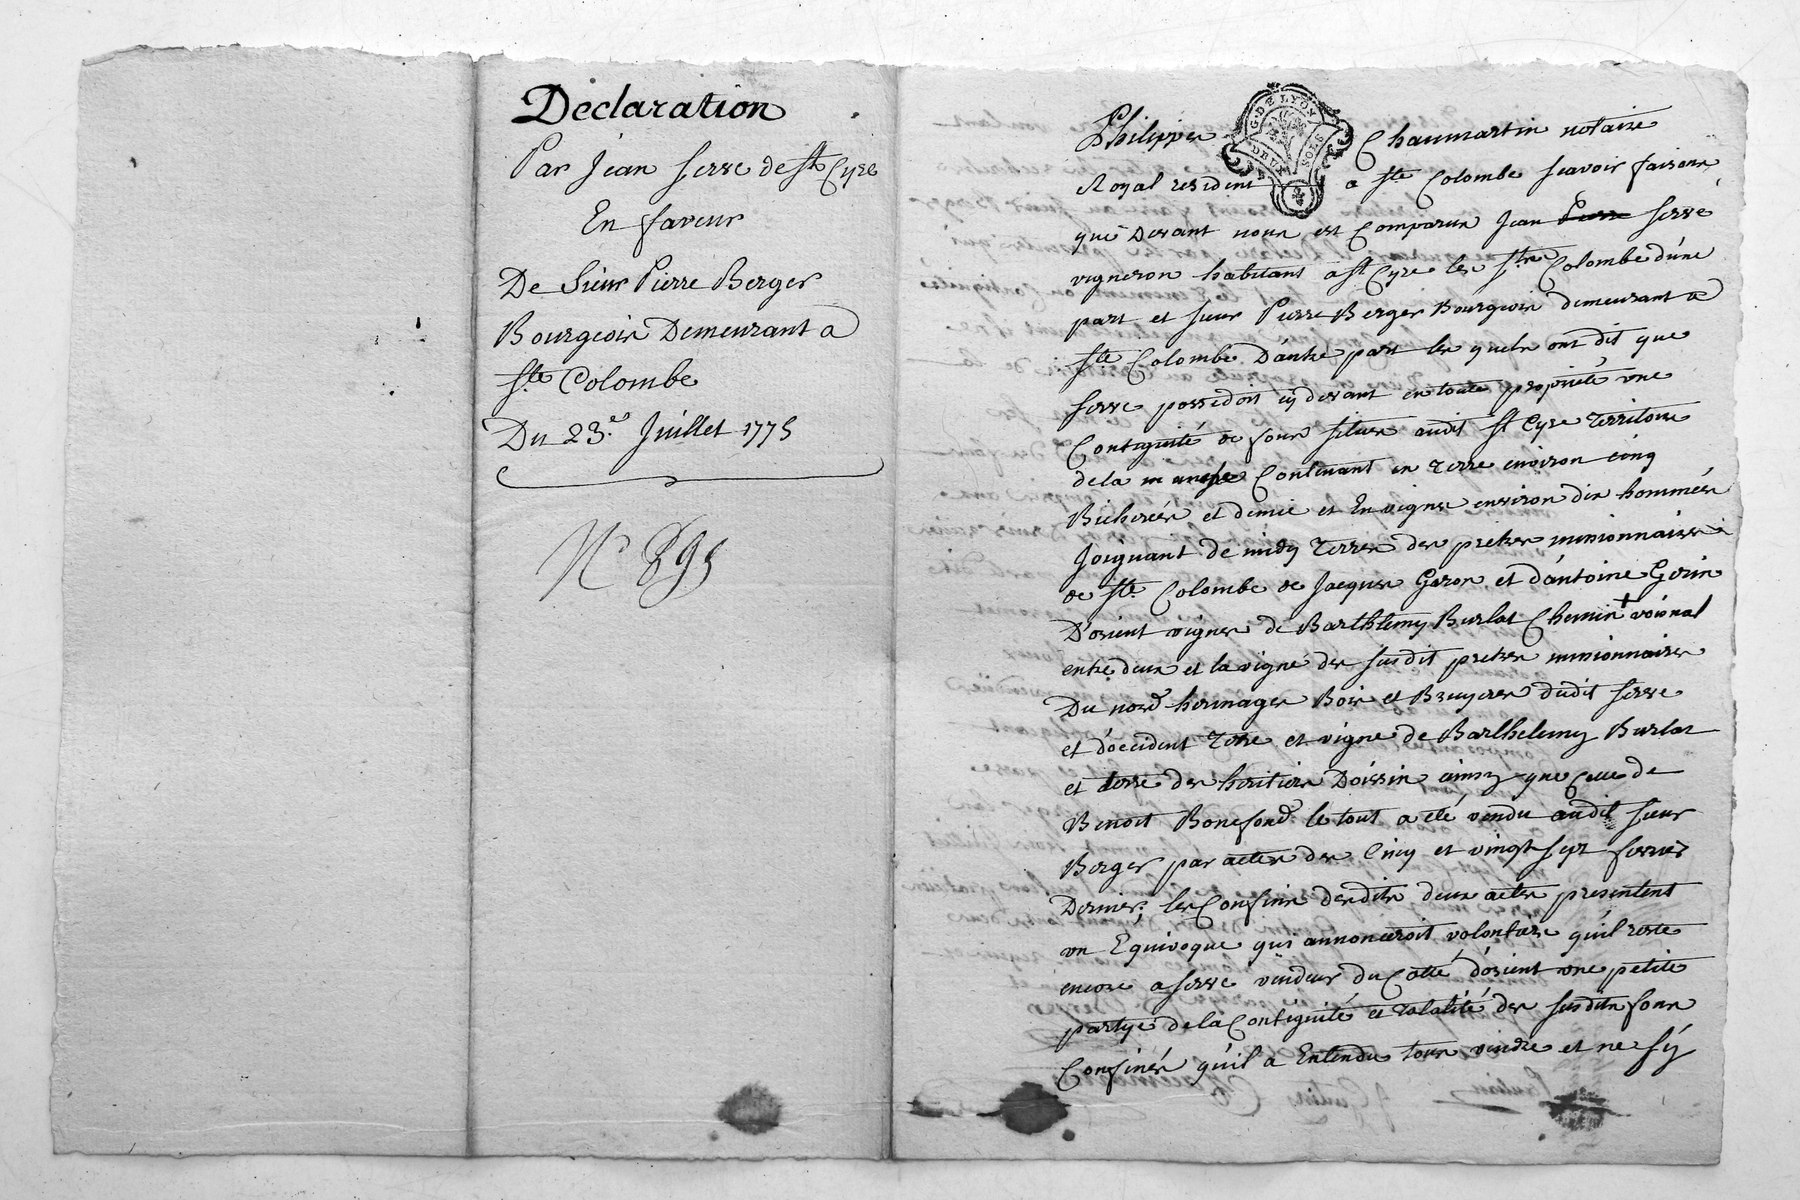 Déclaration
Par Jean Serre de St Cyre
En faveur
De Sieur Pierre Berger
Bourgeois Demeurant a
Ste Colombe
Du 23.e Juillet 1775
N° 895
G. DE LYON
DEUX SOLS
Philippes Chaumartin notaire
Royal resident a Ste Colombe scavoir faisons
que Devant nous est Comparus Jean Serre
vigneron habitant a St Cyre les Ste Colombe d'une
part et sieur Pierre Berger Bourgeois demeurant a
Ste Colombe D'autre part les quels ont dit que
Serre possedoit cy devant en toute propriété une
Contiguité de fonds situés audit St Cyre Territoire
de la contenant en terre environ cinq
Bicherées et demie et En vigne environ dix hommées
Joignant de midy Terres des pretres missionnaires
de Ste Colombe de Jacques Geron et d'antoine Gerin
D'orient vignes de Barthlemy Burlat Chemin voisinal
entre deux et la vigne des susdit pretres missionnaires
Du nord hermages Bois et Bruyeres dudit Serre
et d'occident Terre et vigne de Barthelemy Burlat
et terre des heritiers Doissin ainsy que Celle de
Benoit Bonefond le tout a été vendu audit sieur
Berger par actes des Cinq et vingt sept fevrier
Dernier, les Confins desdits deux actes presentent
un Equivoque qui annonceroit volontiers qu'il reste
encore a Serre vendeur du Cotté d'orient une petite
partye de la Contiguité et totalité des susdits fonds
Confinés qu'il a Entendu tous vendre et ne s'y